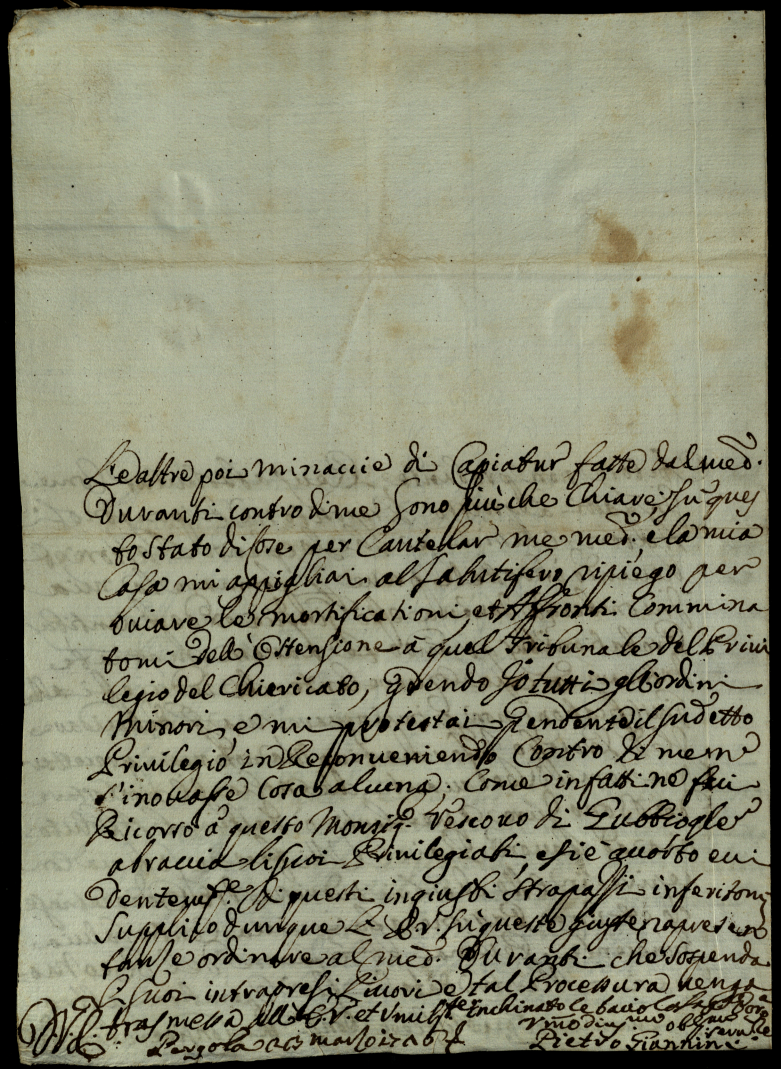 Le altre poi minaccie di Capiatur fatte dal med.º
Duranti contro di me sono più che Chiare, sù ques
to stato di cose per Cautelar me med.º e la mia
Casa mi appigliai al salutifero ripiego per
oviare le mortificationi, et Affronti Commina
tomi dell' Ostensione à quel Tribunale del Privi
legio del Chiericato, Io tutti gli ordini
Minori, e mi protestai pendente il sudetto
Privilegio in Reconveniendo Contro di me nõ
s'inovasse Cosa alcuna, Come infatti ne feci
Ricorso à questo Monsig.r Vescovo di Gubbio
abraccia li suoi Privilegiati, e si è evi
dentem.te di questi ingiusti strapassi inferitomi
Supplico dunque sù queste giuste rapresen
tanze ordinare al med.º Duranti che sospenda
li suoi intrapresi e tal Processura venga
trasmessa all' E. V. et umilm.te Inchinato le bacio la
Pergola 23 Marzo
Pietro Giannini